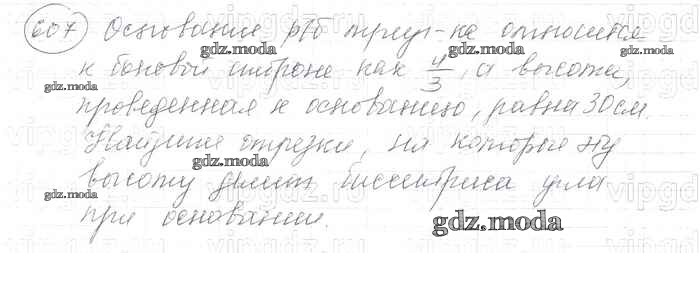 607 Основание р/б треуг-ка относится
к боковой стороне как 4/3, а высота,
проведенная к основанию, равна 30 см.
Найдите отрезки, на которые эту
высоту делит биссектриса угла
при основании.
gdz.moda
gdz.moda
gdz.moda
gdz.moda
gdz.moda
gdz.moda